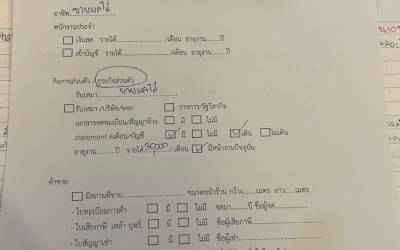 อาชีพ ขายผลไม้
พนักงานประจำ
เงินสด รายได้ /เดือน อายุงาน ปี
เข้าบัญชี รายได้ /เดือน อายุงาน ปี
กิจการส่วนตัว / ธุรกิจส่วนตัว
รับเหมา ขายผลไม้
รับเหมา /บริษัท/หจก ราชการ/รัฐวิสาหกิจ
เอกสารจดทะเบียน/สัญญาจ้าง มี ไม่มี
statement 6เดือน/บัญชี มี ไม่มี เดิน ไม่เดิน
อายุงาน ปี รายได้ 30,000 / เดือน มีหน้างานปัจจุบัน
ค้าขาย
มีสถานที่ขาย ขนาดหน้าร้าน กว้าง เมตร ยาว เมตร
- ใบทะเบียนการค้า มี ไม่มี จดมา ปี ชื่อผู้จด
- ใบเสียภาษี เหล้า บุหรี่ มี ไม่มี ชื่อผู้เสียภาษี
- ใบสัญญาเช่า มี ไม่มี ชื่อผู้เช่า